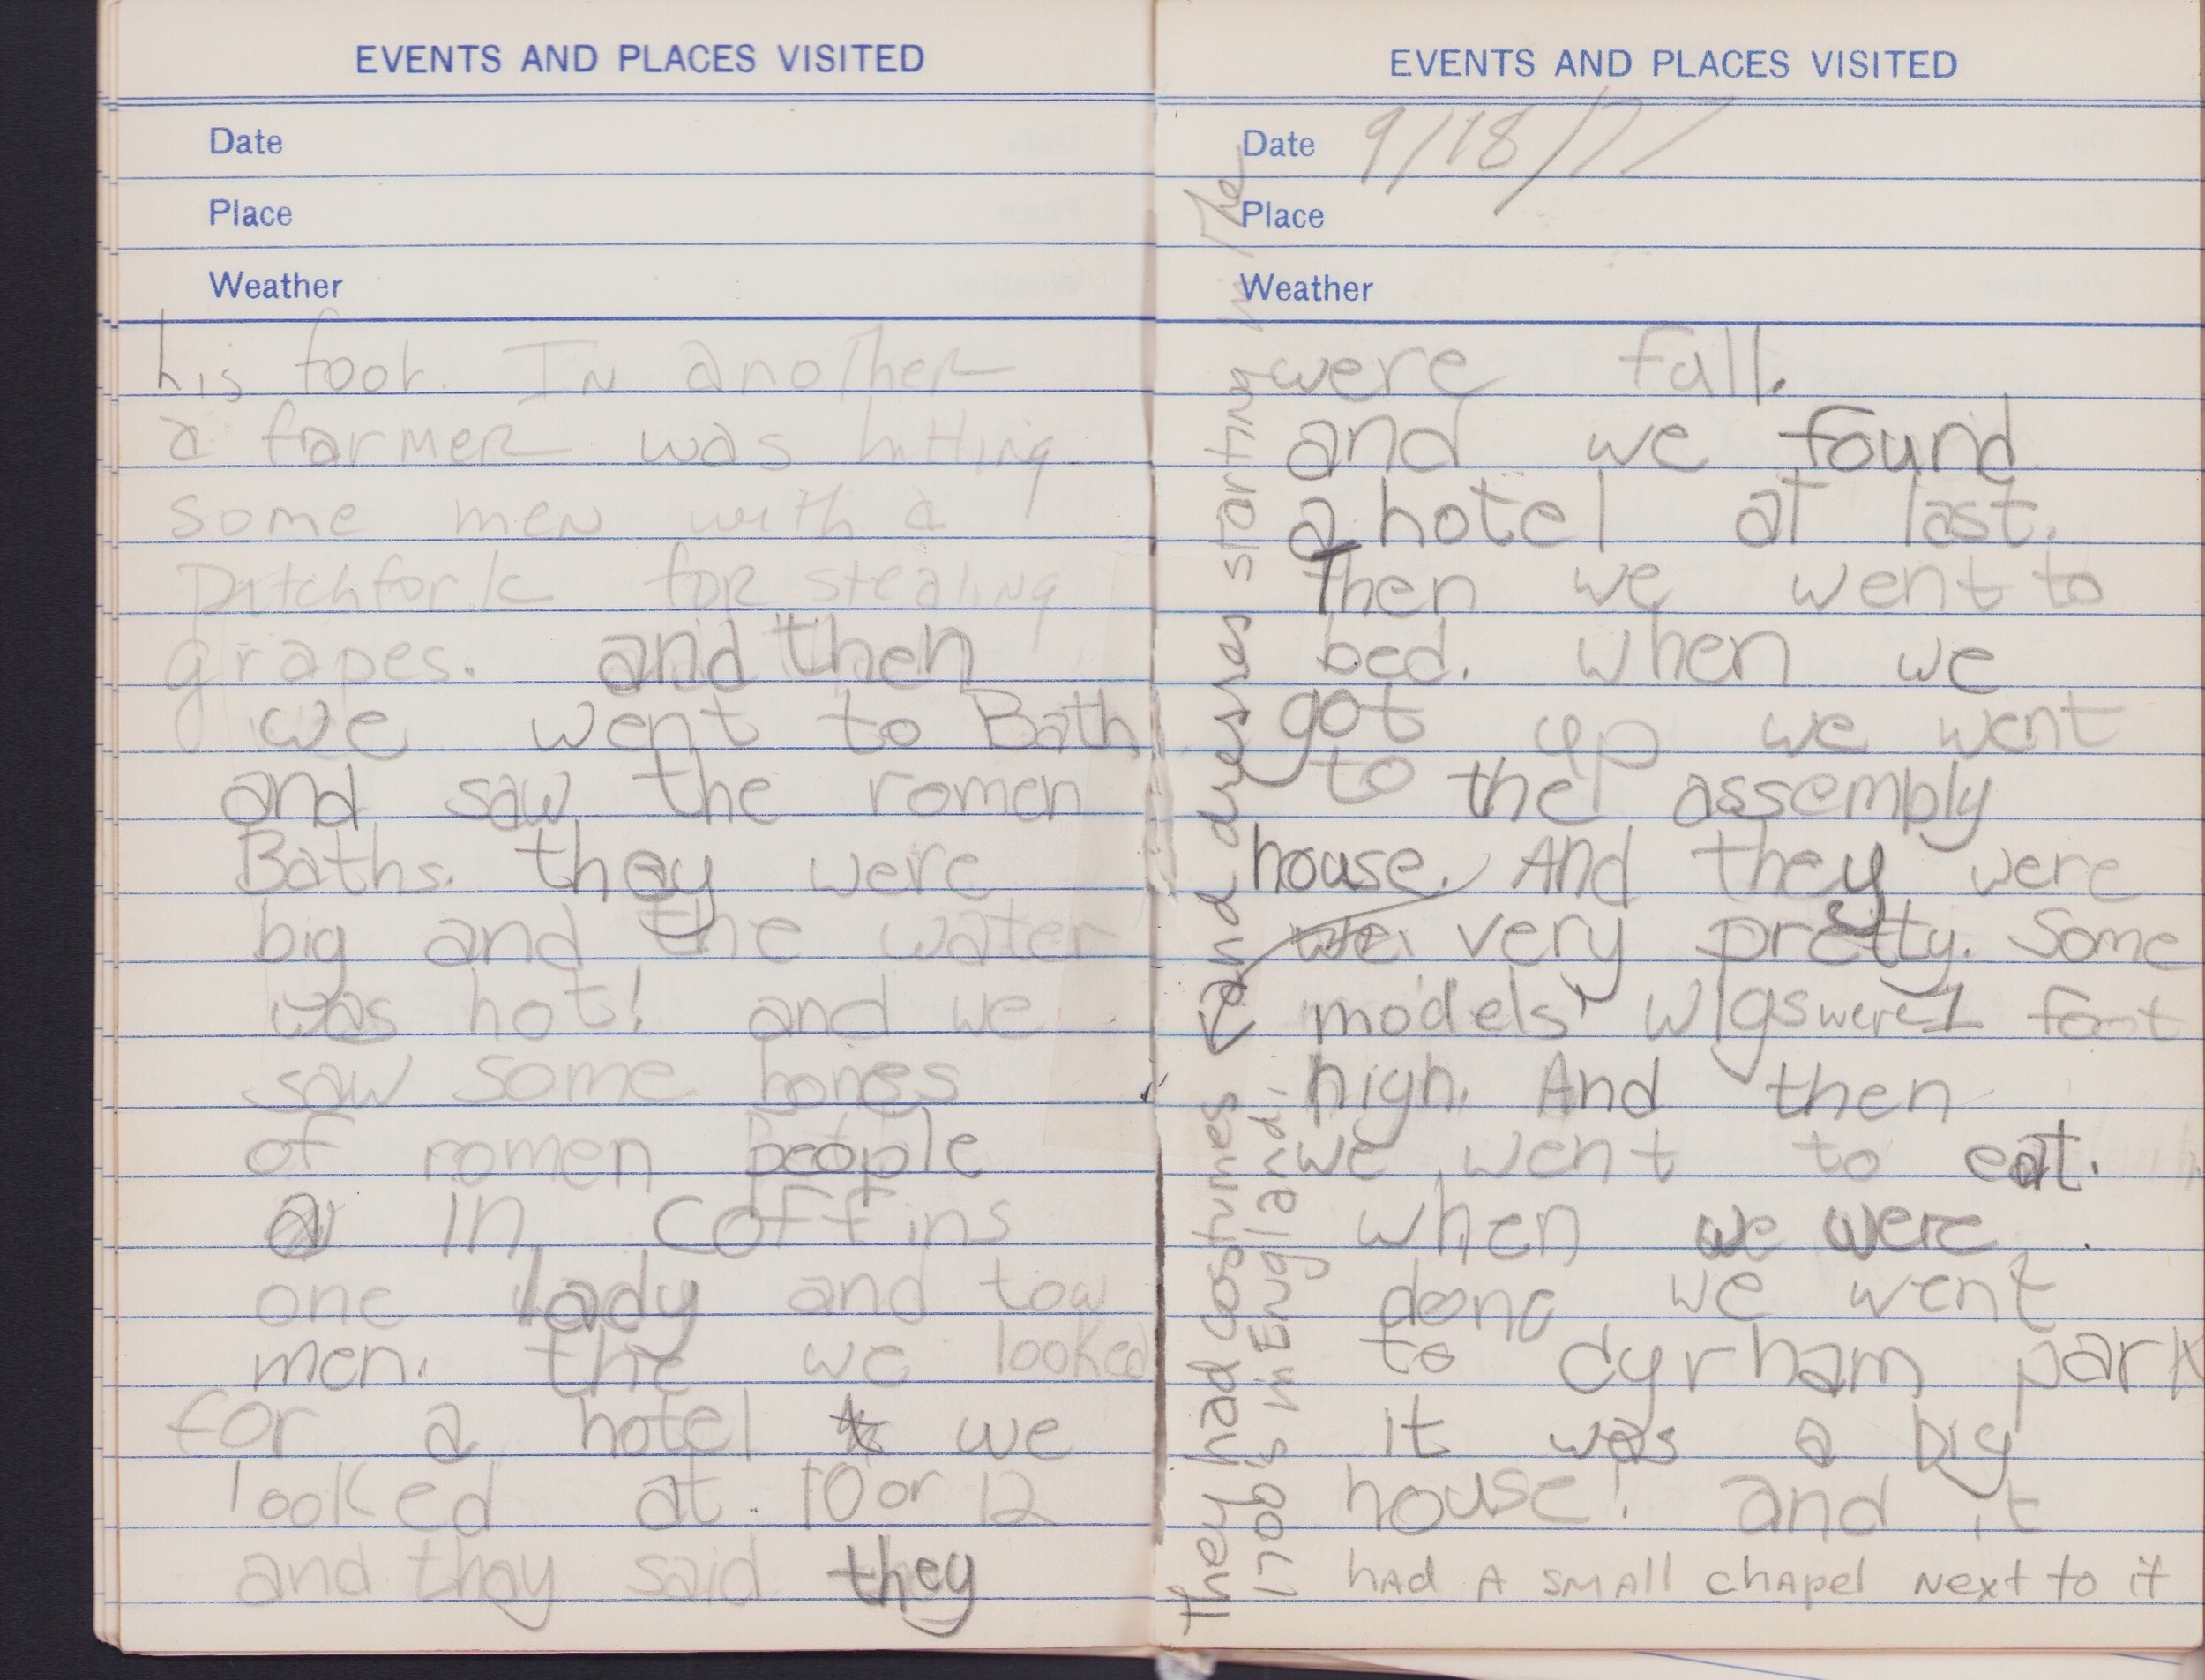 EVENTS AND PLACES VISITED
Date
Place
Weather
his foot. In another
a farmer was hitting
some men with a
pitchfork for stealing
grapes. and then
we went to Bath
and saw the romen
Baths. thay were
big and the water
was hot! and we
saw some bones
of romen people
in coffins
one lady and tow
men. the we looked
for a hotel we
looked at 10 or 12
and thay said they
EVENTS AND PLACES VISITED
Date 9/18/77
Place
Weather
were full.
and we found
a hotel at last.
Then we went to
bed. when we
got up we went
to the assembly
house. And they were
very pretty. Some
models' wigs were 1 foot
high. And then
we went to eat.
when we were
done we went
to dyrham park
it was a big
house! and it
had a small chapel next to it
They had costumes and dresses starting in the
1700's in England.